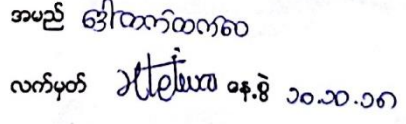 အမည် ဒေါ်ထက်ထက်လ
လက်မှတ် နေ့စွဲ ၁၀.၁၀.၁၈